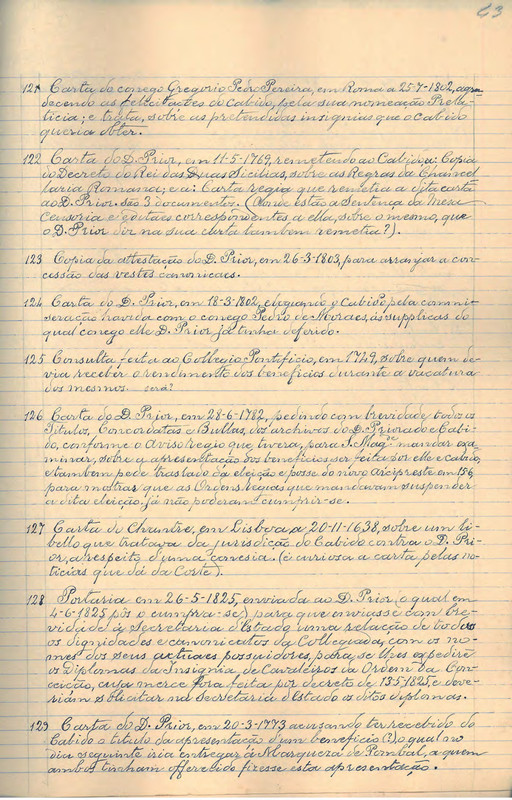 63
121 Carta do conego Gregorio Pedro Pereira, em Roma a 25-7-1802, agra-
decendo as felicitações do Cabido, pela sua nomeação Prela-
ticia; e trata, sobre as pretendidas insignias que o Cabido
queria obter.
122 Carta do D. Prior, em 11-5-1769, remetendo ao Cabido, a: Copia
do Decreto do Rei das Duas Sicilias, sobre as Regras da Chancel
laria Romana; e a: Carta regia que remetia a dita carta
ao D. Prior. São 3 documentos. (Aonde estão a Sentença da Mesa
Censoria e editaes correspondentes a ella, sobre o mesmo, que
o D. Prior diz na sua carta tambem remetia?).
123 Copia da attestação do D. Prior, em 26-3-1803, para arranjar a con-
cessão das vestes canonicaes.
124 Carta do D. Prior, em 18-3-1802, elogiando o Cabido pela commi-
seração havida com o conego Pedro de Moraes, ás supplicas do
qual conego elle D. Prior já tinha deferido.
125 Consulta feita ao Collegio Pontificio, em 1749, sobre quem de-
via receber o rendimento dos beneficios durante a vacatura
dos mesmos. será?
126 Carta do D. Prior, em 28-6-1782, pedindo com brevidade todos os
Titulos, Concordatas e Bullas, dos archivos do D. Priorado e Cabi-
do, conforme o Aviso regio que tivera, para S. Magde mandar exa-
minar, sobre a apresentação dos beneficios ser feita por elle e Cabido,
e tambem pede traslado da eleição e posse do novo Arcipreste em 156,
para mostrar que as Ordens regias que mandavam suspender
a dita eleição, já não poderam cumprir-se.
127 Carta do Chantre, em Lisboa a 20-11-1638, sobre um li-
bello que tratava da jurisdição do Cabido contra o D. Pri-
or, a respeito d'uma conesia. (é curiosa a carta pelas no-
ticias que dá da Corte).
128 Portaria em 26-5-1825, enviada ao D. Prior (o qual em
4-6-1825 pôs o cumpra-se) para que enviasse com bre-
vidade á Secretaria d'Estado uma relação de todas
as dignidades e canonicatos da Collegiada, com os no-
mes dos seus actuaes possuidores, para se lhes expedire
os Diplomas da Insignia de Cavaleiros da Ordem da Con-
ceição, cuja merce fôra feita por decreto de 13-5-1825, e deve-
riam solicitar na Secretaria d'Estado os ditos diplomas.
129 Carta do D. Prior, em 20-3-1773 acusando ter recebido do
Cabido o titulo da apresentação d'um beneficio (?) o qual no
dia seguinte iria entregar á Marqueza de Pombal, a quem
ambos tinham offerecido fizesse esta apresentação.